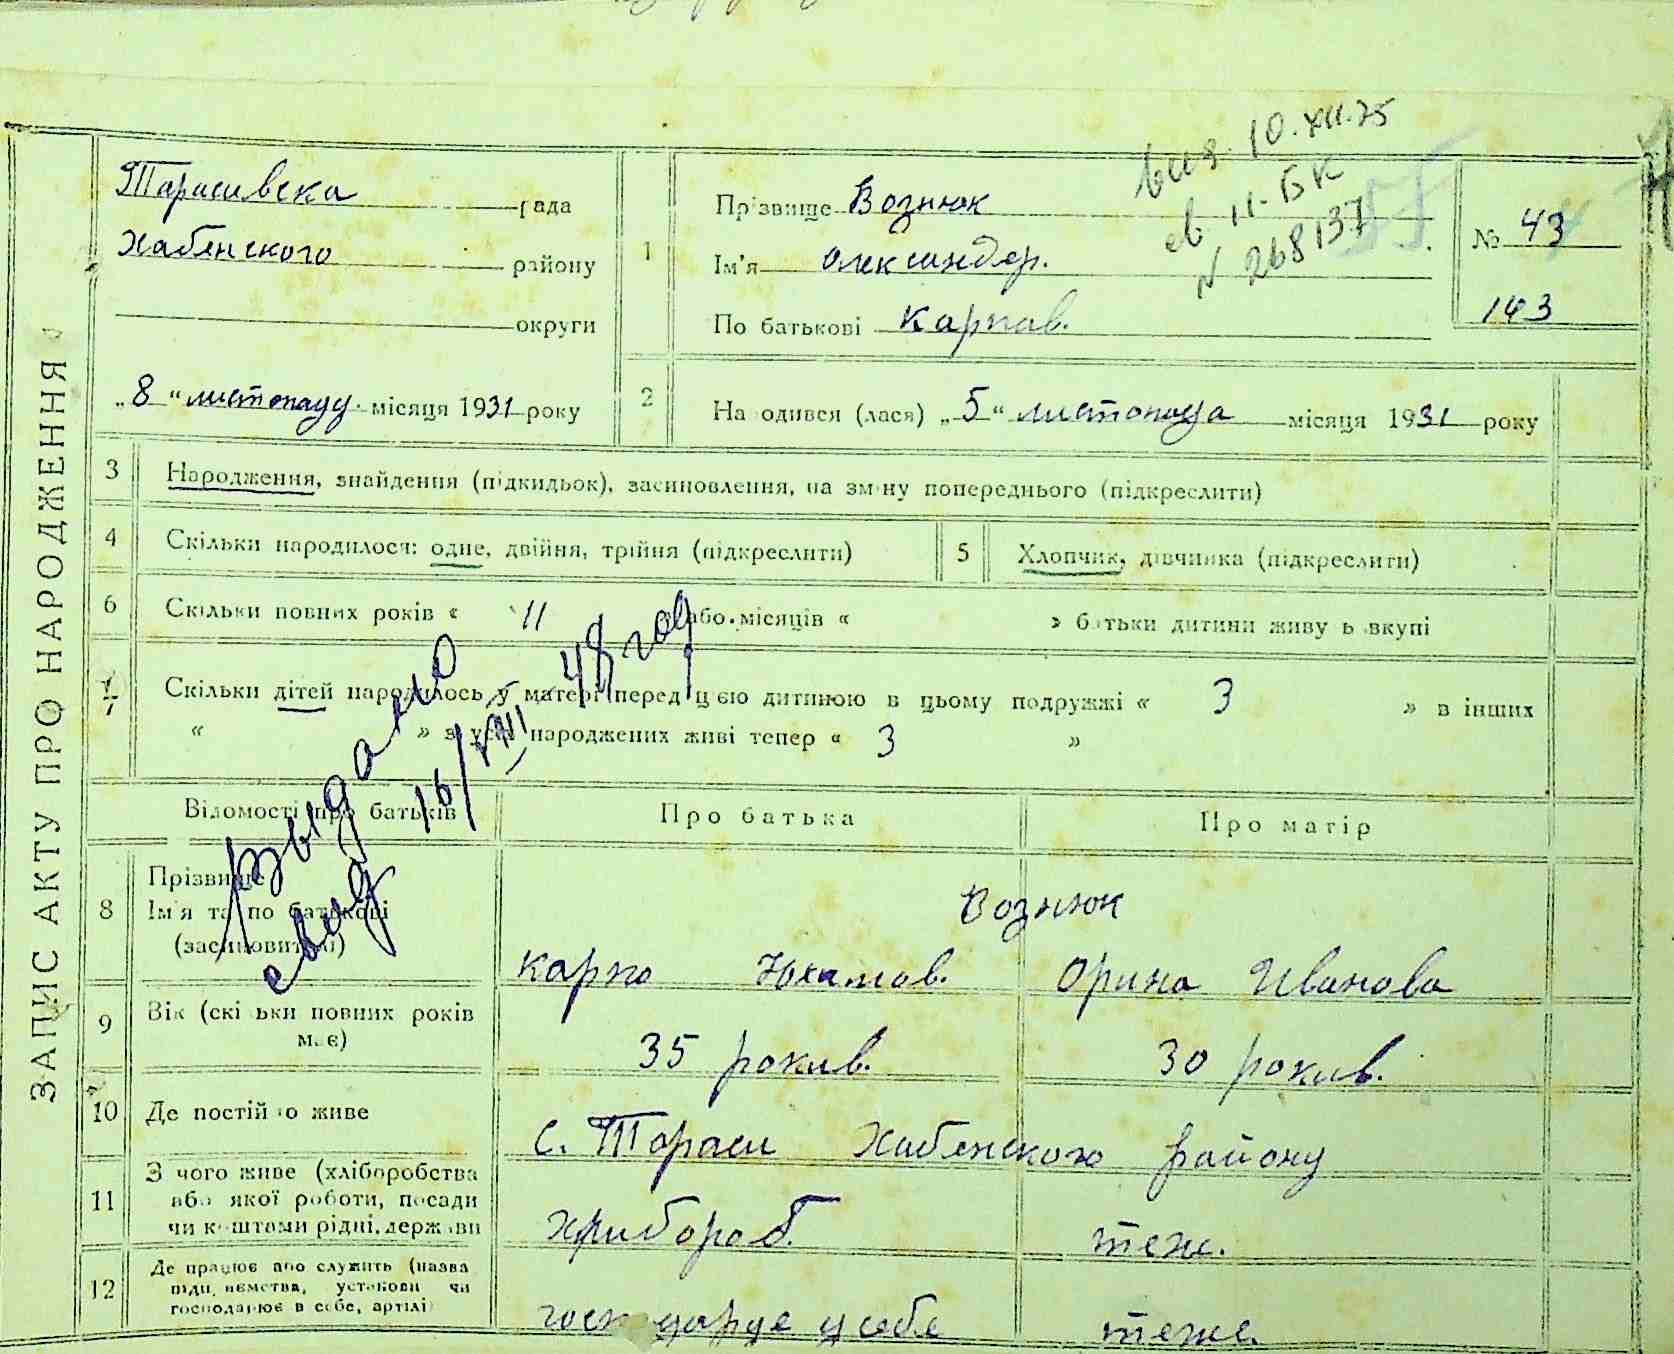 ЗАПИС АКТУ ПРО НАРОДЖЕННЯ
Тарасивска рада
Хабенского району
округи
„8“ листопаду. місяця 1931 року
1
Прізвище Вознюк
Ім'я Олександер.
По батькові Карпов.
10.XII.75
II-БК
N 268137
№ 43
143
2
На одився (лася) „5“ листопада місяця 1931 року
3 Народження, знайдення (підкидьок), засиновлення, на зміну попереднього (підкреслити)
4 Скільки народилося: одне, двійня, трійня (підкреслити)
5 Хлопчик, дівчинка (підкреслити)
6 Скільки повних років « 11 або місяців « » батьки дитини живу ь вкупі
7 Скільки дітей народилось у матері перед цією дитиною в цьому подружжі « 3 » в інших
« » з усіх народжених живі тепер « 3 »
Выдано
свид 16/VIII 48 год
Відомості про батьків
Про батька
Про матір
8 Прізвище
Ім'я та по батькові
(засиновителі)
Вознюк
Карпо Юхимов.
Орина Иванова
9 Вік (скі ьки повних років
має)
35 рокив.
30 рокив.
10 Де постій о живе
с. Тараси Хабенского району
11 З чого живе (хліборобства
або якої роботи, посади
чи коштами рідні, держави
хлибороб.
теж.
12 Де працює або служить (назва
підприємства, установи чи
господарює в себе, артілі)
господарує у себе
теже.